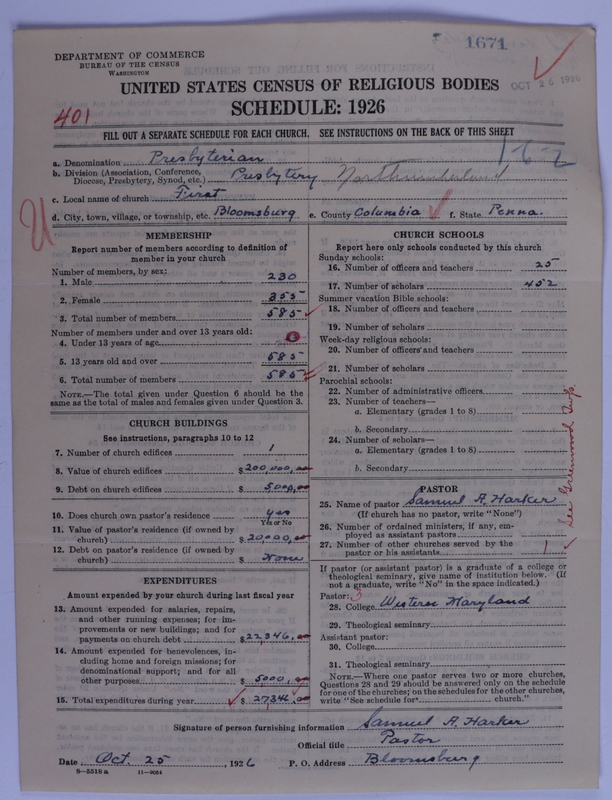 1671
OCT 26 1926
DEPARTMENT OF COMMERCE
BUREAU OF THE CENSUS
WASHINGTON
UNITED STATES CENSUS OF RELIGIOUS BODIES
SCHEDULE: 1926
401
FILL OUT A SEPARATE SCHEDULE FOR EACH CHURCH. SEE INSTRUCTIONS ON THE BACK OF THIS SHEET
1-6-2
a. Denomination Presbyterian
b. Division (Association, Conference, Diocese, Presbytery, Synod, etc.) Presbytery Northumberland
c. Local name of church First
d. City, town, village, or township, etc. Bloomsburg e. County Columbia f. State Penna.
MEMBERSHIP
Report number of members according to definition of
member in your church
Number of members, by sex:
1. Male 230
2. Female 355
3. Total number of members 585
Number of members under and over 13 years old:
4. Under 13 years of age 0
5. 13 years old and over 585
6. Total number of members 585
NOTE.—The total given under Question 6 should be
same as the total of males and females given under Question 3.
CHURCH BUILDINGS
See instructions, paragraphs 10 to 12
7. Number of church edifices 1
8. Value of church edifices $200,000,00
9. Debt on church edifices $5000,00
10. Does church own pastor's residence yes
Yes or No
11. Value of pastor's residence (if owned by
church) $20,000,00
12. Debt on pastor's residence (if owned by
church) $ None
EXPENDITURES
Amount expended by your church during last fiscal year
13. Amount expended for salaries, repairs,
and other running expenses; for im-
provements or new buildings; and for
payments on church debt $22,346,00
14. Amount expended for benevolences, in-
cluding home and foreign missions; for
denominational support; and for all
other purposes $5000,00
15. Total expenditures during year $27346,00
CHURCH SCHOOLS
Report here only schools conducted by this church
Sunday schools:
16. Number of officers and teachers 25
17. Number of scholars 452
Summer vacation Bible schools:
18. Number of officers and teachers
19. Number of scholars
Week-day religious schools:
20. Number of officers and teachers
21. Number of scholars
Parochial schools:
22. Number of administrative officers
23. Number of teachers—
a. Elementary (grades 1 to 8)
b. Secondary
24. Number of scholars—
a. Elementary (grades 1 to 8)
b. Secondary
See Greenwood Twp.
PASTOR
25. Name of pastor Samuel A. Harker
(If church has no pastor, write "None")
26. Number of ordained ministers, if any, em-
ployed as assistant pastors
27. Number of other churches served by the
pastor or his assistants 1
If pastor (or assistant pastor) is a graduate of a college or
theological seminary, give name of institution below. (If
not a graduate, write "No" in the space indicated.)
Pastor: 3
28. College Western Maryland
29. Theological seminary
Assistant pastor:
30. College
31. Theological seminary
NOTE.—Where one pastor serves two or more churches,
Questions 28 and 29 should be answered only on the schedule
for one of the churches; on the schedules for the other churches,
write "See schedule for church."
Signature of person furnishing information Samuel A. Harker
Official title Pastor
Date Oct. 25, 1926 P. O. Address Bloomsburg
8—5518 a 11—9054